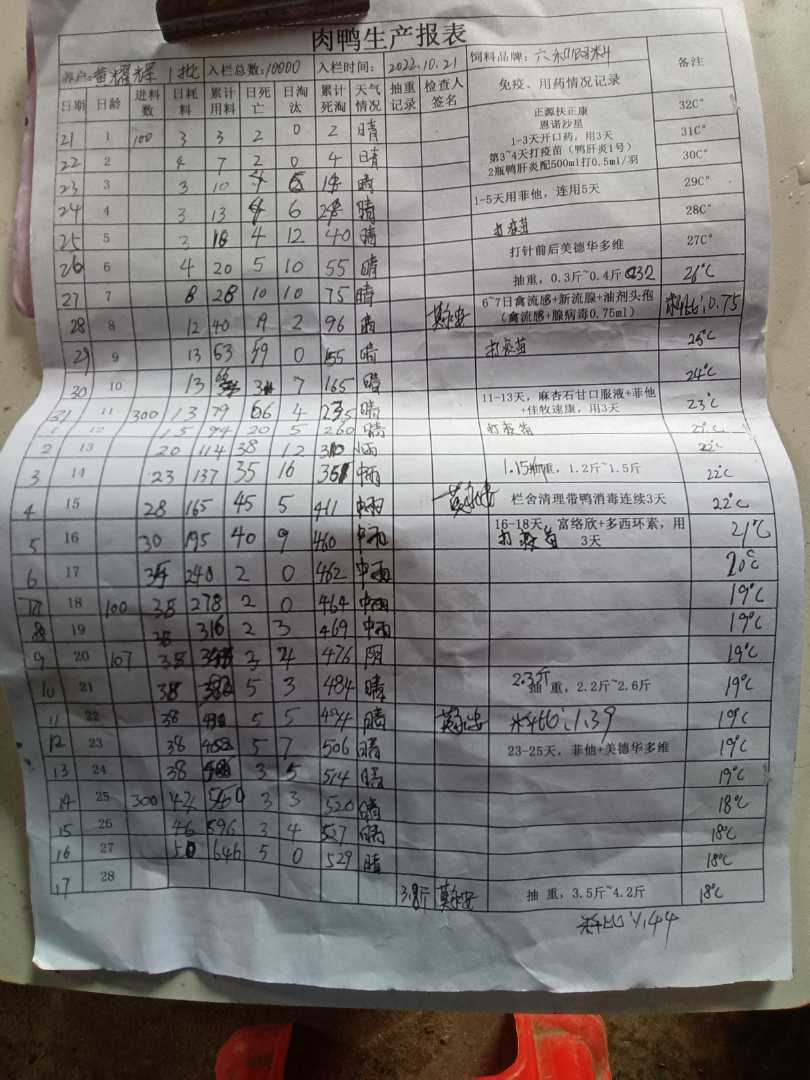 肉鸭生产报表
养户:黄耀辉 1批 入栏总数:10000 入栏时间: 2022.10.21 饲料品牌:六和
日期 日龄 进料数 日耗料 累计用料 日死亡 日淘汰 累计死淘 天气情况 抽重记录 检查人签名 免疫、用药情况记录 备注
21 1 100 3 3 2 0 2 晴 正源扶正康 32C°
恩诺沙星
22 2 4 7 2 0 4 晴 1-3天开口药,用3天 31C°
第3~4天打疫苗(鸭肝炎1号)
23 3 3 10 4 晴 2瓶鸭肝炎配500ml打0.5ml/羽 30C°
24 4 3 13 4 6 晴 1-5天用菲他,连用5天 29C°
25 5 3 16 4 12 40 晴 打疫苗 28C°
26 6 4 20 5 10 55 晴 打针前后美德华多维 27C°
27 7 8 28 10 10 75 晴 抽重,0.3斤~0.4斤 0.32 26℃
28 8 12 40 19 2 96 6~7日禽流感+新流腺+油剂头孢 料比:0.75
(禽流感+腺病毒0.75ml)
29 9 13 53 59 0 155 晴 打疫苗 25℃
30 10 13 7 165 晴 24℃
31 11 300 13 79 66 4 235 晴 11-13天,麻杏石甘口服液+菲他 23℃
+佳牧速康,用3天
12 15 94 20 5 260 晴 打疫苗
2 13 20 114 38 12 310 小雨 22℃
3 14 23 137 35 16 361 中雨 1.15斤 抽重,1.2斤~1.5斤 22℃
4 15 28 165 45 5 411 中雨 栏舍清理带鸭消毒连续3天 22℃
5 16 30 195 40 9 460 中雨 16-18天,富络欣+多西环素,用3天 打疫苗 21℃
6 17 240 2 0 462 中雨 20℃
18 100 38 278 2 0 464 中雨 19℃
8 19 38 316 2 3 469 中雨 19℃
9 20 107 38 3 4 476 阴 19℃
10 21 38 5 3 484 晴 2.3斤 抽重,2.2斤~2.6斤 19℃
11 22 38 5 5 494 晴 料比:1.39 19℃
12 23 38 468 5 7 506 晴 23-25天,菲他+美德华多维 19℃
13 24 38 3 5 514 晴 19℃
14 25 300 540 3 3 520 晴 18℃
15 26 46 596 3 4 527 晴 18℃
16 27 50 646 5 0 529 晴 18℃
17 28 3.8斤 抽重,3.5斤~4.2斤 18℃
料比:1.44